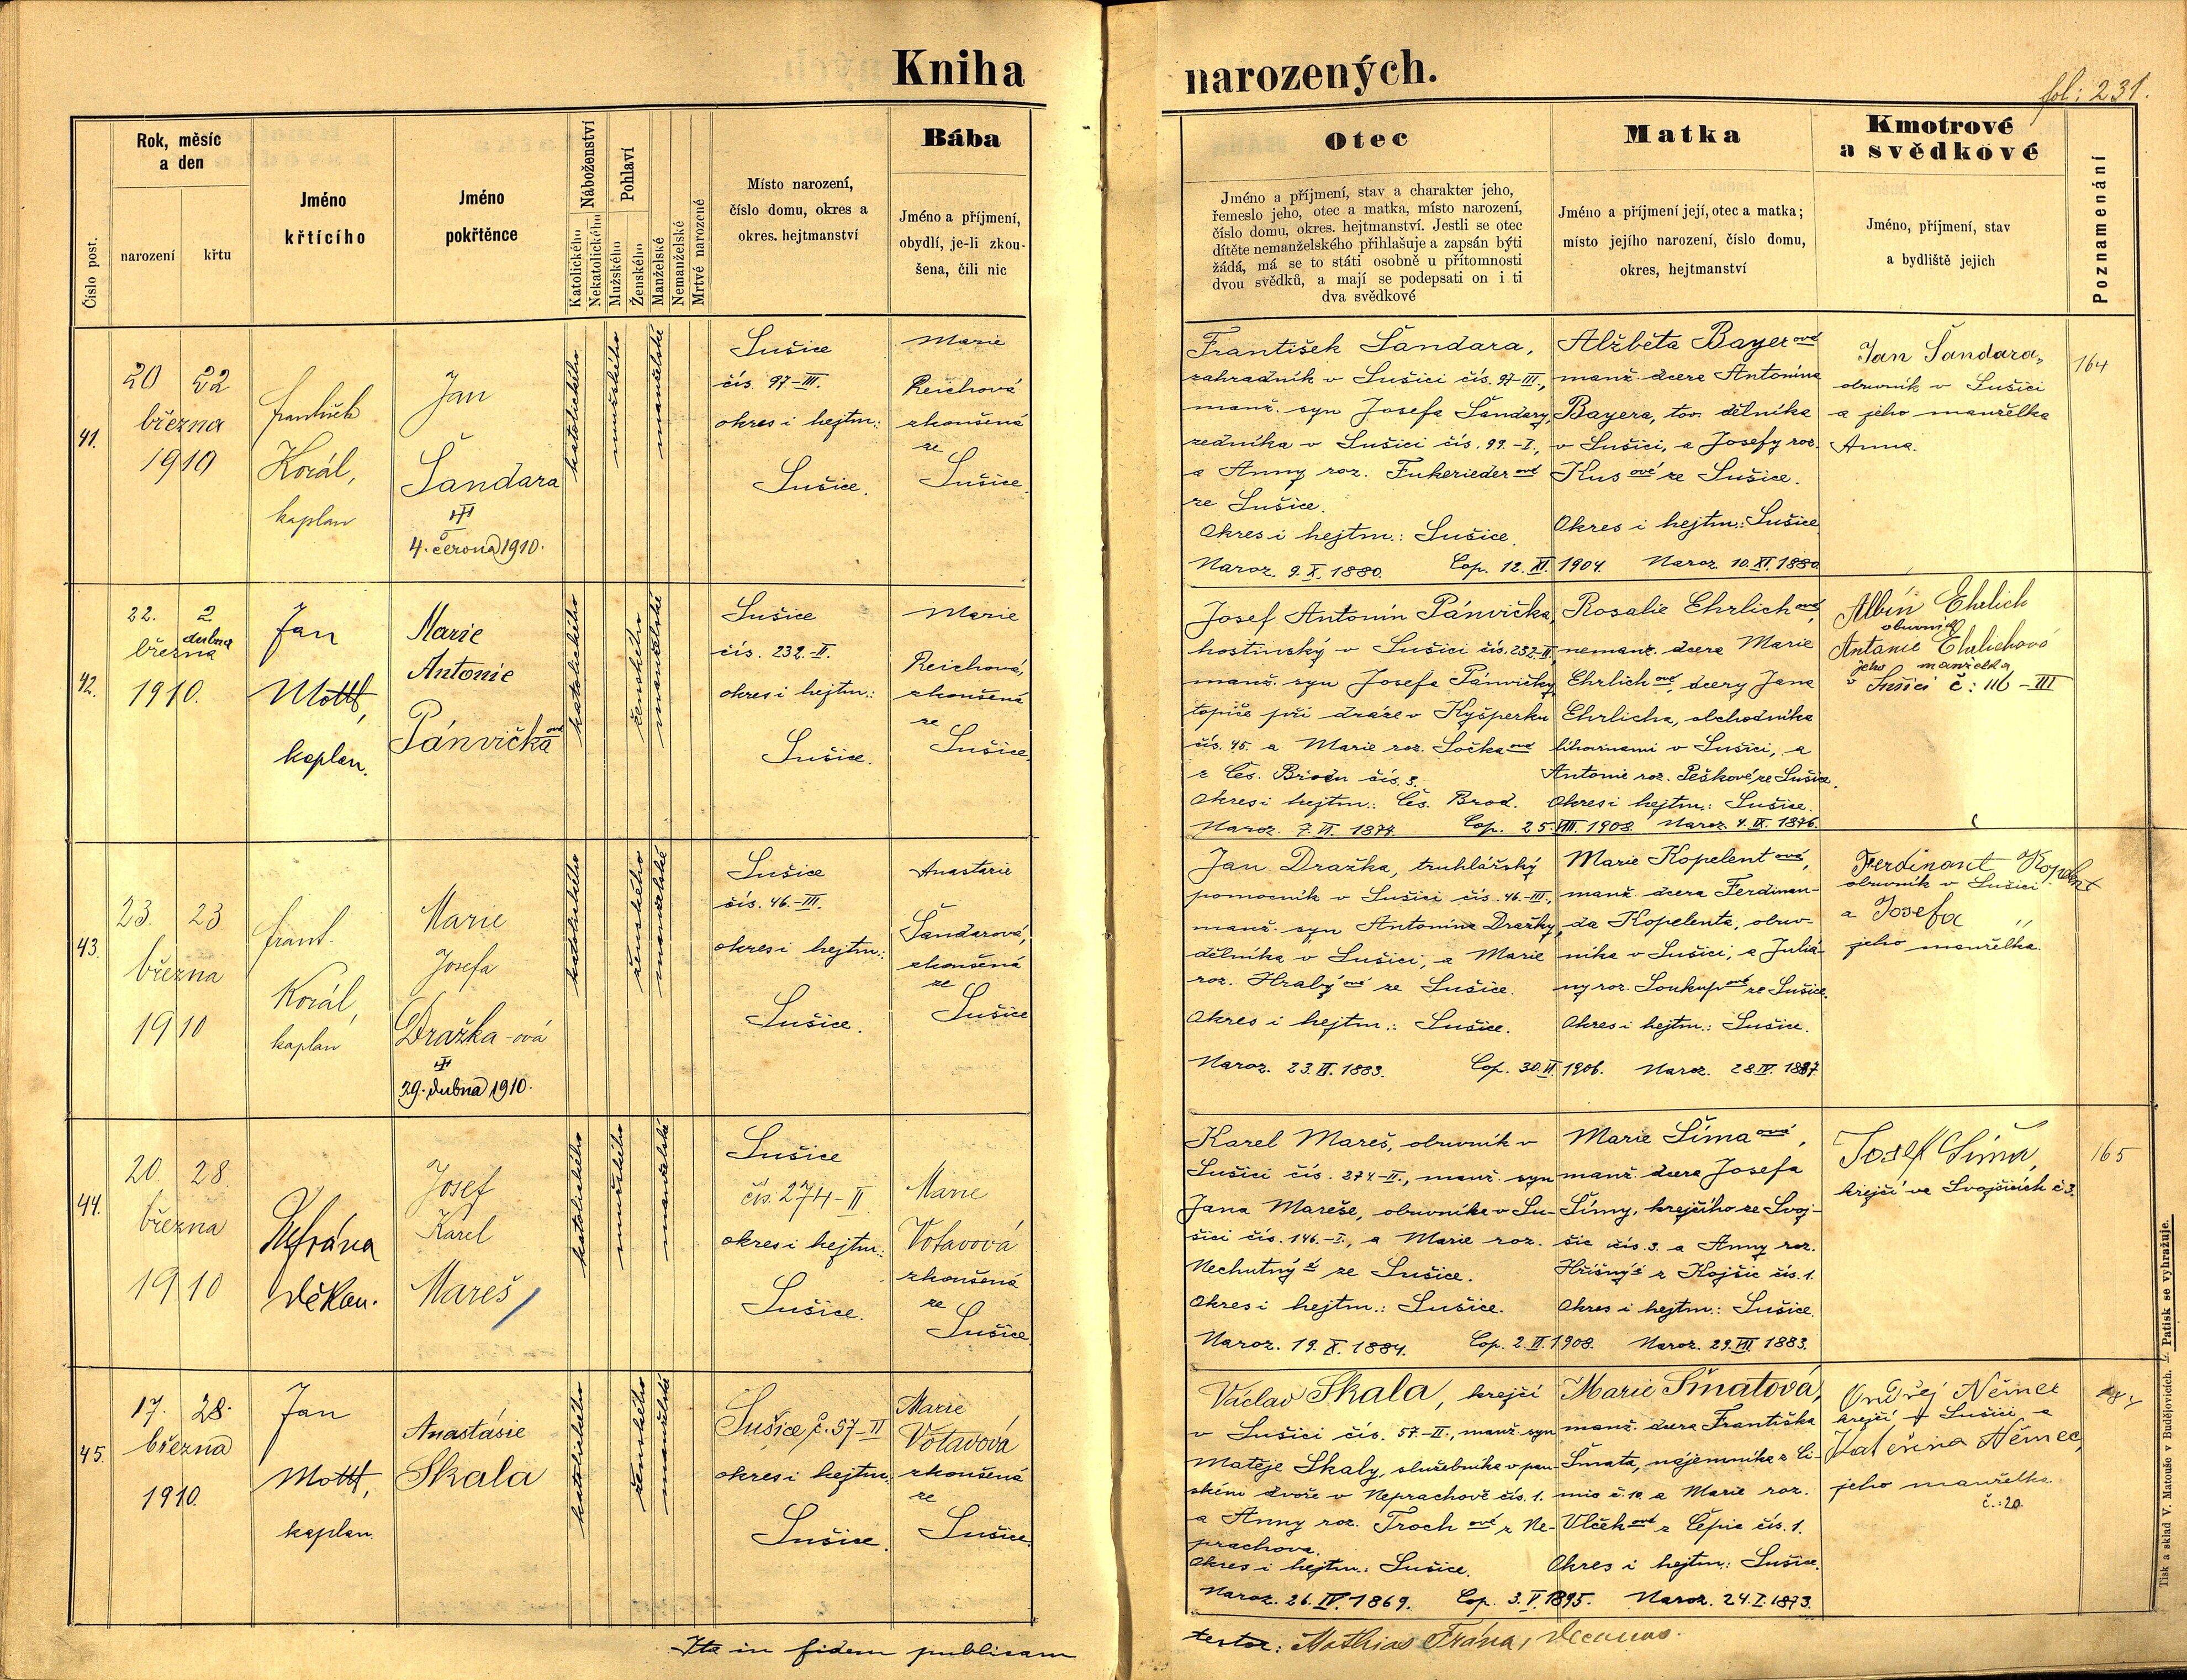 Kniha
narozených.
fol: 231.
Číslo post.
Rok, měsíc
a den
narození
křtu
Jméno
křtícího
Jméno
pokřtěnce
Náboženství
Katolického
Nekatolického
Pohlaví
Mužského
Ženského
Manželské
Nemanželské
Mrtvé narozené
Místo narození,
číslo domu, okres a
okres. hejtmanství
Bába
Jméno a příjmení,
obydlí, je-li zkou-
šena, čili nic
Otec
Jméno a příjmení, stav a charakter jeho,
řemeslo jeho, otec a matka, místo narození,
číslo domu, okres. hejtmanství. Jestli se otec
dítěte nemanželského přihlašuje a zapsán býti
žádá, má se to státi osobně u přítomnosti
dvou svědků, a mají se podepsati on i ti
dva svědkové
Matka
Jméno a příjmení její, otec a matka;
místo jejího narození, číslo domu,
okres, hejtmanství
Kmotrové
a svědkové
Jméno, příjmení, stav
a bydliště jejich
Poznamenání
41.
20 22
března
1910
František
Korál,
kaplan
Jan
Šandara
4. června 1910.
katolického
mužského
manželské
Sušice
čís. 97-III.
okres i hejtm.:
Sušice.
Marie
Reichová
zkoušená
ze
Sušice.
František Šandara,
zahradník v Sušici čís. 97-III.,
manž. syn Josefa Šandary,
zedníka v Sušici čís. 99-I.,
a Anny roz. Fukerieder ové
ze Sušice.
Okres i hejtm.: Sušice.
Naroz. 9. X. 1880. Cop. 12. XI. 1904.
Alžběta Bayer ová
manž. dcera Antonína
Bayera, tov. dělníka
v Sušici, a Josefy roz.
Kus ové ze Sušice.
Okres i hejtm.: Sušice
Naroz. 10. XI. 1880
Jan Šandara,
obuvník v Sušici
a jeho manželka
Anna.
164
42.
22. 2
března dubna
1910.
Jan
Mottl,
kaplan.
Marie
Antonie
Pánvička ová
katolického
ženského
manželské
Sušice
čís. 232-II.
okres i hejtm.:
Sušice.
Marie
Reichová,
zkoušená
ze
Sušice.
Josef Antonín Pánvička,
hostinský v Sušici čís. 232-II,
manž. syn Josefa Pánvičky
topiče při dráze v Kyšperku
čís. 45. a Marie roz. Ločka ové
z Čes. Brodu čís. 3.
Okres i hejtm.: Čes. Brod.
Naroz. 7. VI. 1877. Cop. 25. VIII. 1908.
Rosalie Ehrlich ová,
nemanž. dcera Marie
Ehrlich ové, dcery Jana
Ehrlicha, obchodníka
lihovinami v Sušici, a
Antonie roz. Peškové ze Sušice.
Okres i hejtm.: Sušice.
Naroz. 4. IX. 1876.
Albín Ehrlich
obuvník
Antonie Ehrlichová
jeho manželka
v Sušici č: 116-III
43.
23. 23
března
1910
Frant.
Korál,
kaplan
Marie
Josefa
Dražka-ová
29. dubna 1910.
katolického
ženského
manželské
Sušice
čís. 46-III.
okres i hejtm.:
Sušice.
Anastazie
Šandarová,
zkoušená
ze
Sušice
Jan Dražka, truhlářský
pomocník v Sušici čís. 46-III.,
manž. syn Antonína Dražky,
dělníka v Sušici, a Marie
roz. Hrabý ové ze Sušice.
Okres i hejtm.: Sušice.
Naroz. 23. VI. 1883. Cop. 30. VI. 1906.
Marie Kopelent ová,
manž. dcera Ferdinan-
da Kopelenta, obuv-
níka v Sušici, a Juliá-
ny roz. Soukup ové ze Sušice.
Okres i hejtm.: Sušice.
Naroz. 28. IV. 1887.
Ferdinant Kopelent
obuvník v Sušici
a Josefa
jeho manželka.
44.
20 28.
března
1910
děkan.
Josef
Karel
Mareš
katolického
mužského
manželské
Sušice
čís. 274-II
okres i hejtm.:
Sušice.
Marie
Votavová
zkoušená
ze
Sušice
Karel Mareš, obuvník v
Sušici čís. 274-II., manž. syn
Jana Mareše, obuvníka v Su-
šici čís. 146-I., a Marie roz.
Nechutný é ze Sušice.
Okres i hejtm.: Sušice.
Naroz. 19. X. 1884. Cop. 2. II. 1908.
Marie Šíma ová,
manž. dcera Josefa
Šímy, krejčího ze Svoj-
šic čís. 3. a Anny roz.
Hříšný é z Kojšic čís. 1.
Okres i hejtm.: Sušice
Naroz. 29. VII. 1883.
Josef Šíma,
krejčí ve Svojšicích č 3.
165
45.
17. 28.
března
1910.
Jan
Mottl,
kaplan.
Anastásie
Skala
katolického
ženského
manželské
Sušice, č. 57-II
okres i hejtm.:
Sušice.
Marie
Votavová
zkoušená
ze
Sušice.
Václav Skala, krejčí
v Sušici čís. 57-II., manž. syn
Matěje Skaly, služebníka v pan-
ském dvoře v Neprachově čís. 1.
a Anny roz. Troch ové z Ne-
prachova.
Okres i hejtm.: Sušice.
Naroz. 26. IV. 1869. Cop. 3. V. 1895.
Marie Šmatová,
manž. dcera Františka
Šmata, nájemníka z Či-
mic č. 10. a Marie roz.
Vlček ové z Čepic čís. 1.
Okres i hejtm.: Sušice.
Naroz. 24. I. 1873.
Ondřej Němec
krejčí v Sušici a
Kateřina Němec,
jeho manželka
č.: 20
Ita in fidem publicam
testor: Mathias Frána, decanus.
Tisk a sklad V. Matouše v Budějovicích. Patisk se vyhražuje.